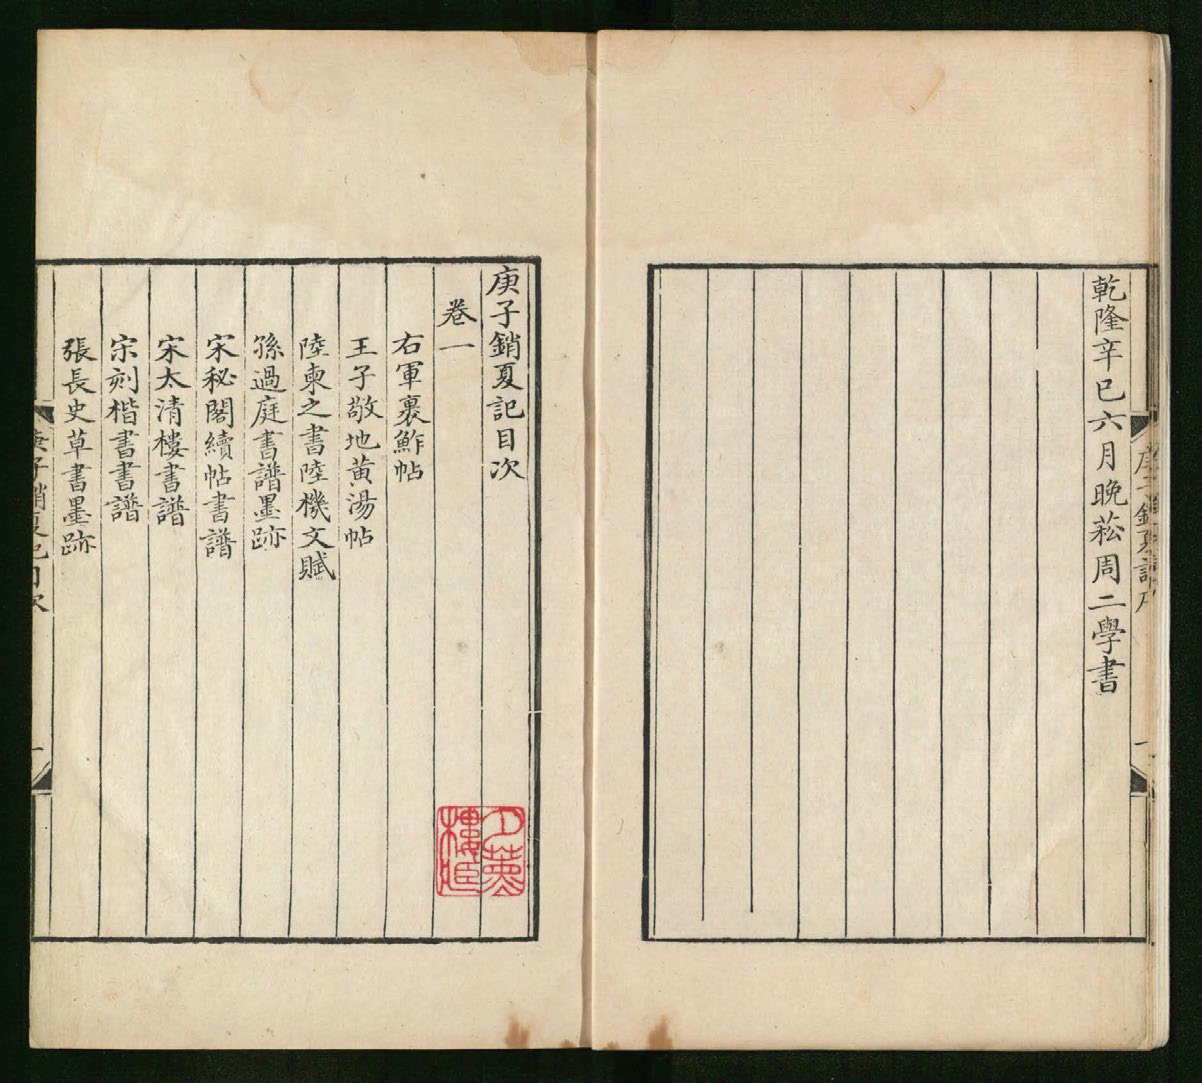 乾隆辛巳六月晩菘周二學書
庚子銷夏記序
庚子銷夏記目次
卷一
右軍裹鮓帖
王子敬地黃湯帖
陸柬之書陸機文賦
孫過庭書譜墨跡
宋秘閣續帖書譜
宋太清樓書譜
宗刻楷書書譜
張長史草書墨跡
庚子銷夏記目次
一